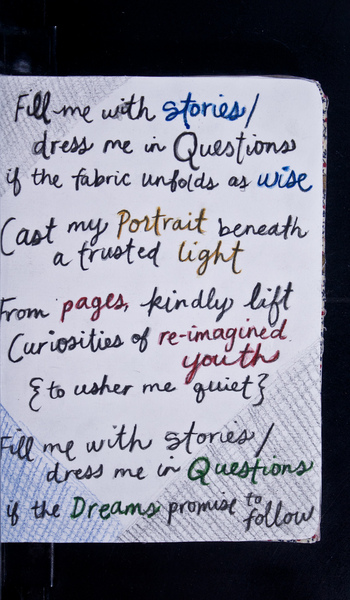 Fill me with stories/
dress me in Questions
if the fabric unfolds as wise
Cast my Portrait beneath
a trusted light
From pages, kindly lift
Curiosities of re-imagined
youth
{to usher me quiet}
Fill me with stories/
dress me in Questions
if the Dreams promise to
follow